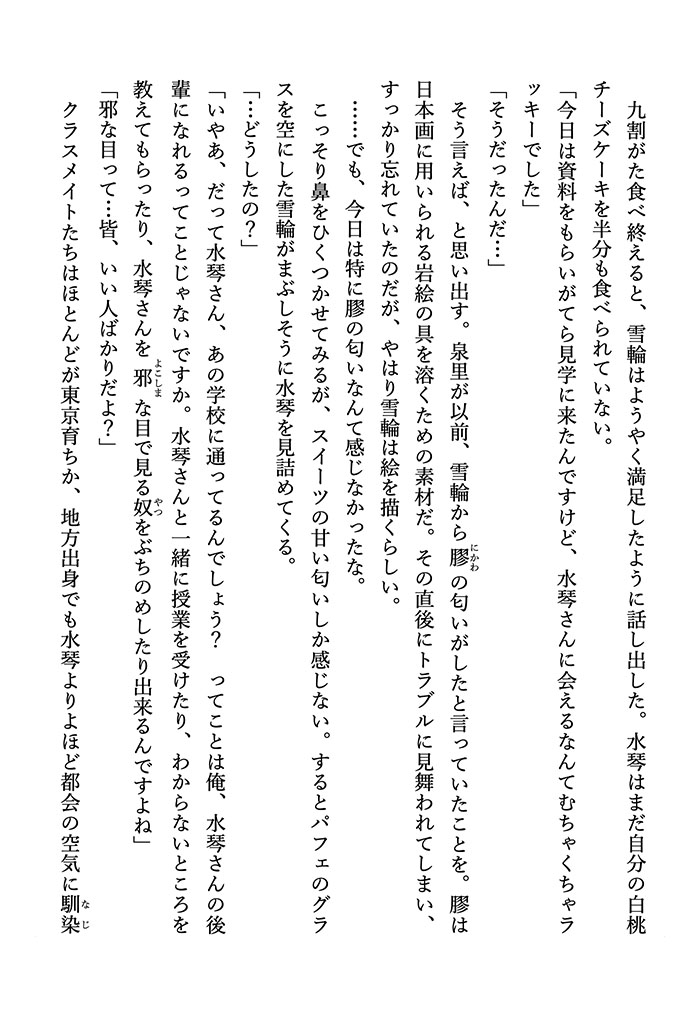 九割がた食べ終えると、雪輪はようやく満足したように話し出した。水琴はまだ自分の白桃
チーズケーキを半分も食べられていない。
「今日は資料をもらいがてら見学に来たんですけど、水琴さんに会えるなんてむちゃくちゃラ
ッキーでした」
「そうだったんだ…」
　そう言えば、と思い出す。泉里が以前、雪輪から膠の匂いがしたと言っていたことを。膠は
にかわ
日本画に用いられる岩絵の具を溶くための素材だ。その直後にトラブルに見舞われてしまい、
すっかり忘れていたのだが、やはり雪輪は絵を描くらしい。
　……でも、今日は特に膠の匂いなんて感じなかったな。
　こっそり鼻をひくつかせてみるが、スイーツの甘い匂いしか感じない。するとパフェのグラ
スを空にした雪輪がまぶしそうに水琴を見詰めてくる。
「…どうしたの？」
「いやあ、だって水琴さん、あの学校に通ってるんでしょう？　ってことは俺、水琴さんの後
輩になれるってことじゃないですか。水琴さんと一緒に授業を受けたり、わからないところを
教えてもらったり、水琴さんを邪な目で見る奴をぶちのめしたり出来るんですよね」
よこしま
やつ
「邪な目って…皆、いい人ばかりだよ？」
　クラスメイトたちはほとんどが東京育ちか、地方出身でも水琴よりよほど都会の空気に馴染
なじ